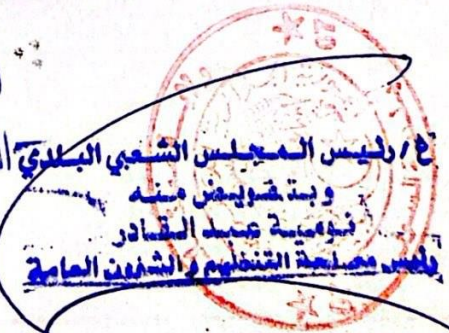 ع/رئيس المجلس الشعبي البلدي
وبتفويض منه
نومية عبد القادر
رئيس مصلحة التنظيم والشؤون العامة